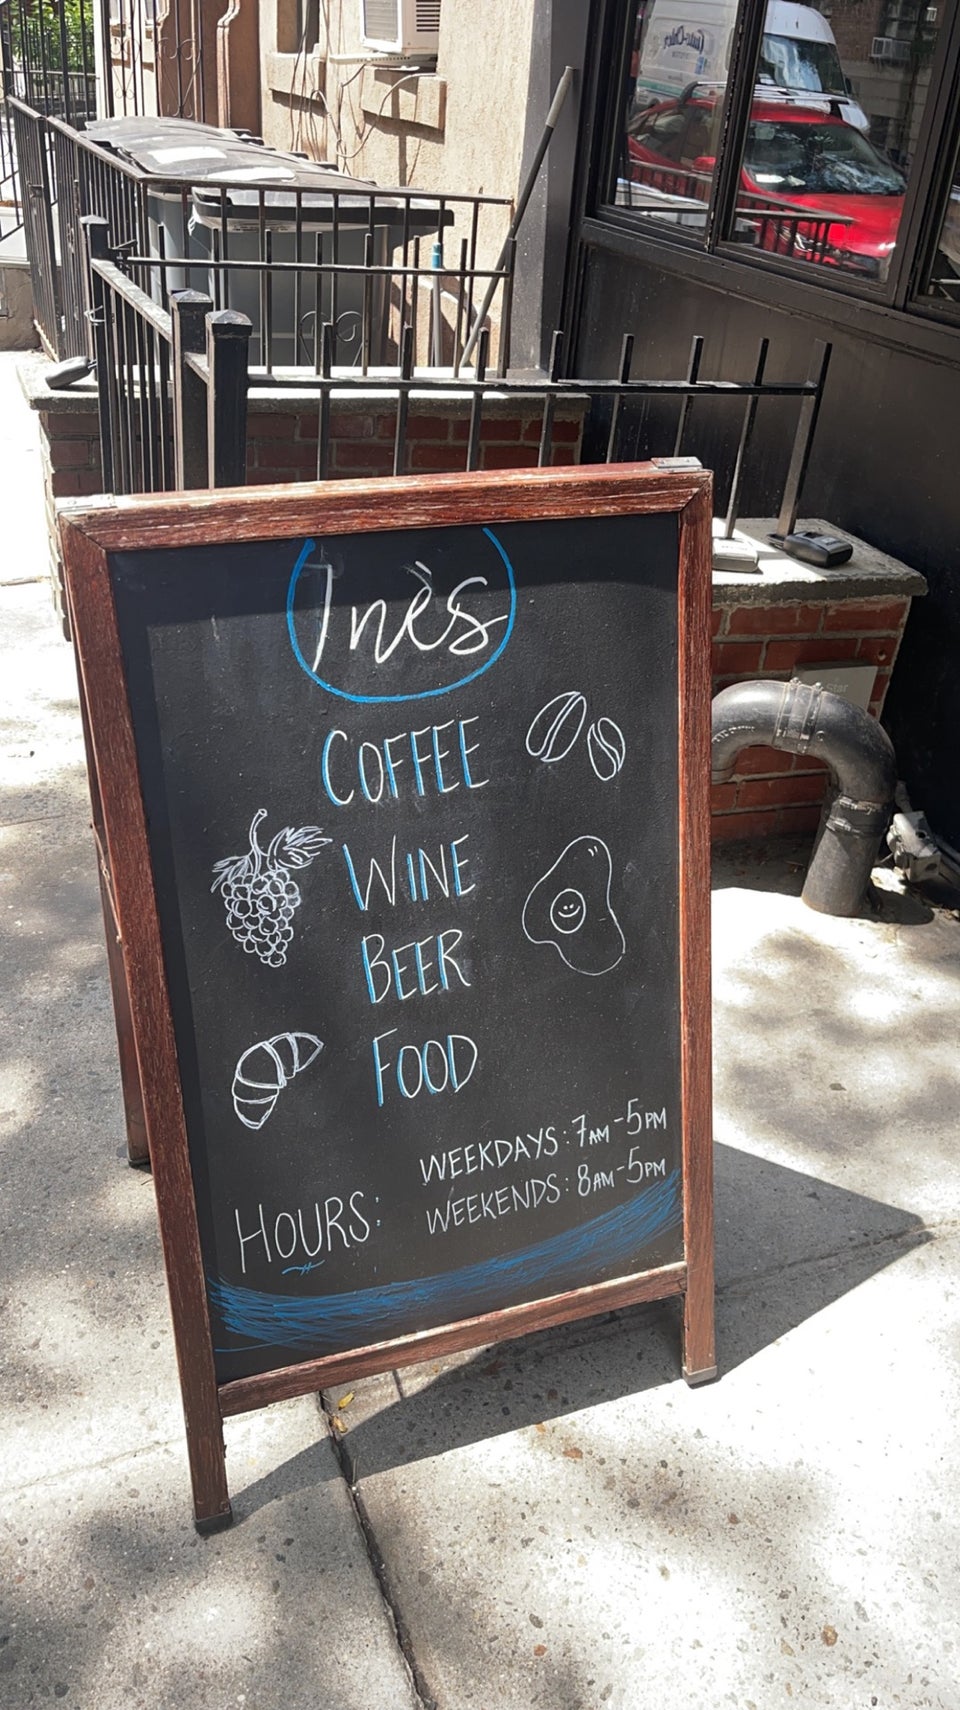 Inès
COFFEE
WINE
BEER
FOOD
HOURS:
WEEKDAYS: 7AM-5PM
WEEKENDS: 8AM-5PM